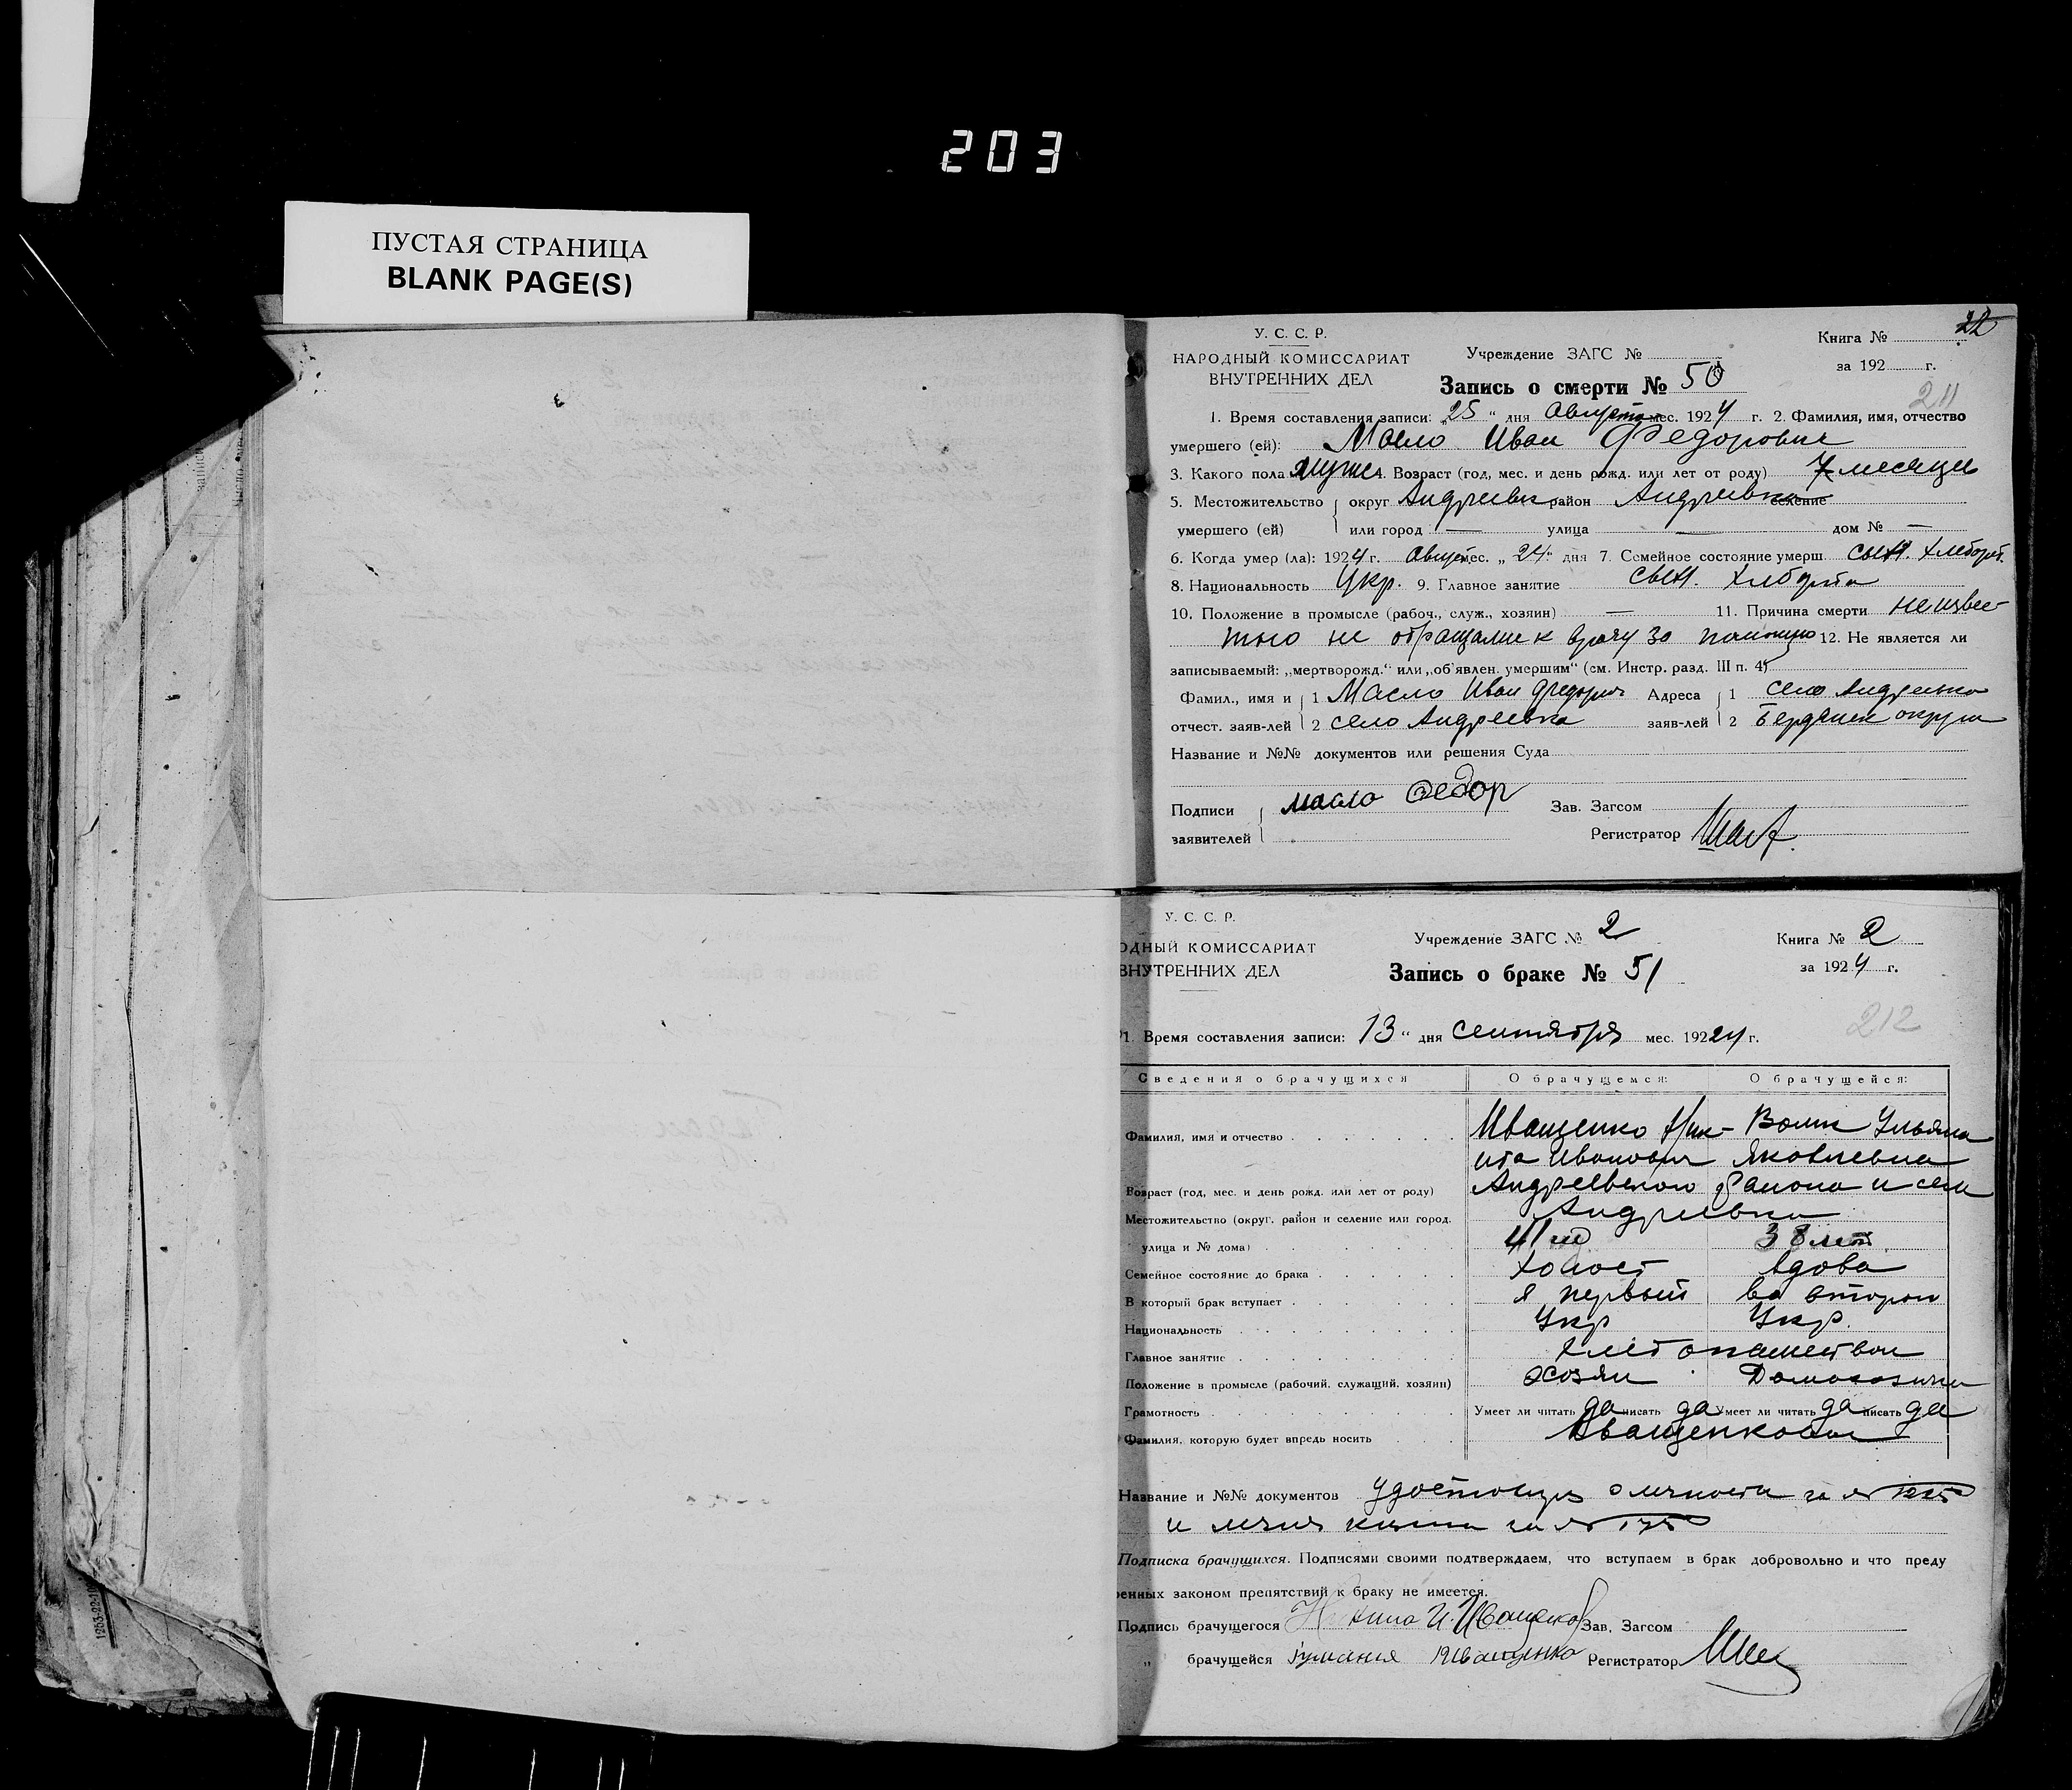 203
ПУСТАЯ СТРАНИЦА
BLANK PAGE(S)
У. С. С. Р.
НАРОДНЫЙ КОМИССАРИАТ
ВНУТРЕННИХ ДЕЛ
Учреждение ЗАГС №
Запись о смерти № 50
Книга №
за 192 г.
211
1. Время составления записи: „25“ дня августа мес. 1924 г. 2. Фамилия, имя, отчество
умершего (ей): Масло Иван Федорович
3. Какого пола мужс 4. Возраст (год, мес. и день рожд. или лет от роду) 7 месяцев
5. Местожительство округ Андреевк район Андреевка селение
умершего (ей) или город — улица — дом № —
6. Когда умер (ла): 1924 г. август мес. „24“ дня 7. Семейное состояние умерш. сын. хлебороб.
8. Национальность Укр. 9. Главное занятие сын. хлебороба
10. Положение в промысле (рабоч., служ., хозяин) — 11. Причина смерти неизвес-
тно не обращались к врачу за помощью 12. Не является ли
записываемый: „мертворожд.“ или „об'явлен. умершим“ (см. Инстр. разд. III п. 4)
Фамил., имя и 1 Масло Иван Федорович Адреса 1 село Андреевка
отчест. заяв-лей 2 село Андреевка заяв-лей 2 Бердянск округа
Название и №№ документов или решения Суда
Подписи масло Федор Зав. Загсом
заявителей Регистратор
У. С. С. Р.
ОДНЫЙ КОМИССАРИАТ
ВНУТРЕННИХ ДЕЛ
Учреждение ЗАГС № 2
Запись о браке № 51
Книга № 2
за 1924 г.
212
1. Время составления записи: 13“ дня сентября мес. 19224 г.
Сведения о брачущихся О брачущемся: О брачущейся:
Фамилия, имя и отчество Иващенко Ник- Волик Ульяна
ита Иванович Яковлевна
Возраст (год, мес. и день рожд. или лет от роду) Андреевского района и села
Местожительство (округ, район и селение или город, Андреевки
улица и № дома) 41 год 38 лет
Семейное состояние до брака холост вдова
В который брак вступает в первый во второй
Национальность Укр Укр.
Главное занятие хлебопашеством
Положение в промысле (рабочий, служащий, хозяин) хозяин Домохозяйка
Грамотность Умеет ли читать да писать да Умеет ли читать да писать да
Фамилия, которую будет впредь носить Иващенковы
Название и №№ документов личности за №
и за № 175
Подписка брачущихся. Подписями своими подтверждаем, что вступаем в брак добровольно и что преду
енных законом препятствий к браку не имеется.
Подпись брачущегося И. Иващенко Зав. Загсом
„ брачущейся Иващенко Регистратор